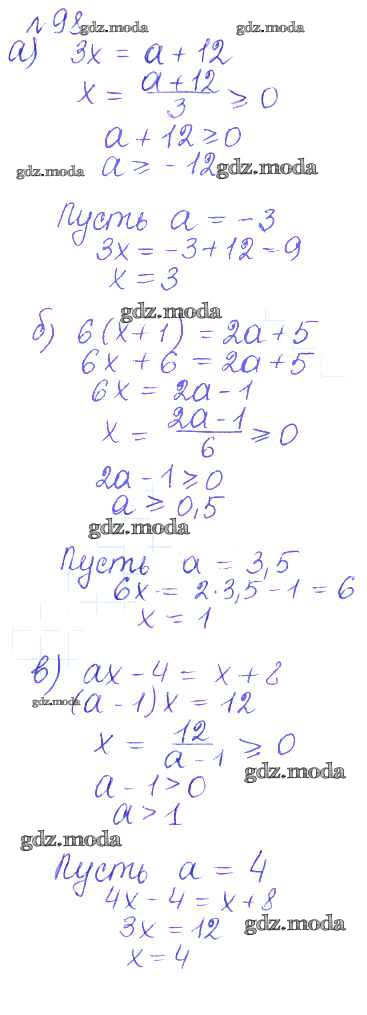 №98 gdz.moda gdz.moda
а) 3x = a + 12
x = (a+12)/3 ≥ 0
gdz.moda gdz.moda
a + 12 ≥ 0
gdz.moda a ≥ -12 gdz.moda
Пусть a = -3
3x = -3 + 12 = 9
x = 3
gdz.moda
б) 6(x+1) = 2a + 5
6x + 6 = 2a + 5
6x = 2a - 1
x = (2a-1)/6 ≥ 0
2a - 1 ≥ 0
a ≥ 0,5
gdz.moda
Пусть a = 3,5
6x = 2·3,5 - 1 = 6
x = 1
в) ax - 4 = x + 8
gdz.moda (a - 1)x = 12
x = 12/(a-1) ≥ 0
gdz.moda
a - 1 > 0
a > 1
gdz.moda
Пусть a = 4
4x - 4 = x + 8
3x = 12 gdz.moda
x = 4